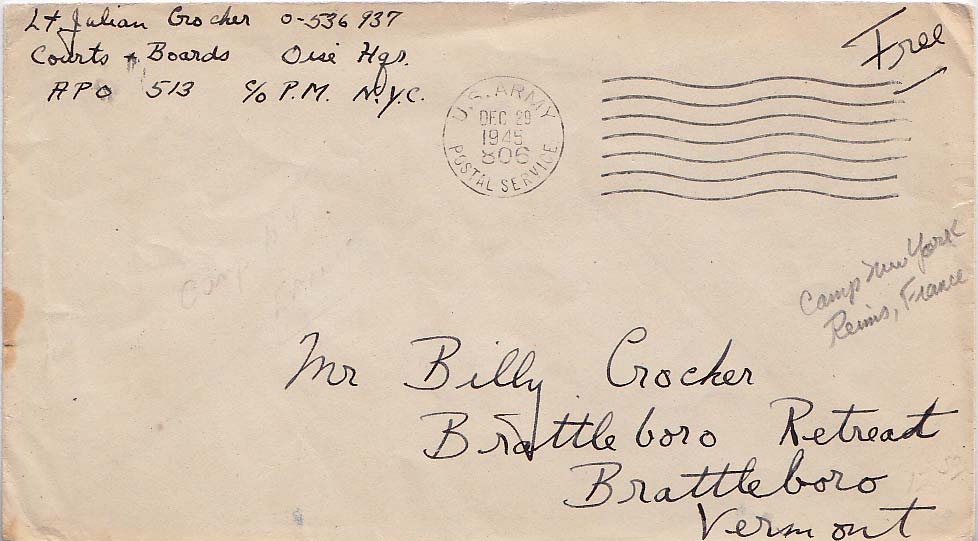 Lt Julian Crocker O-536 937
Courts & Boards Oise Hqs.
APO 513 C/o P.M. N.Y.C.
Free
U.S. ARMY
DEC 29
1945
806
POSTAL SERVICE
Camp New York
Reims, France
Camp
Mr Billy Crocker
Brattleboro Retreat
Brattleboro
Vermont